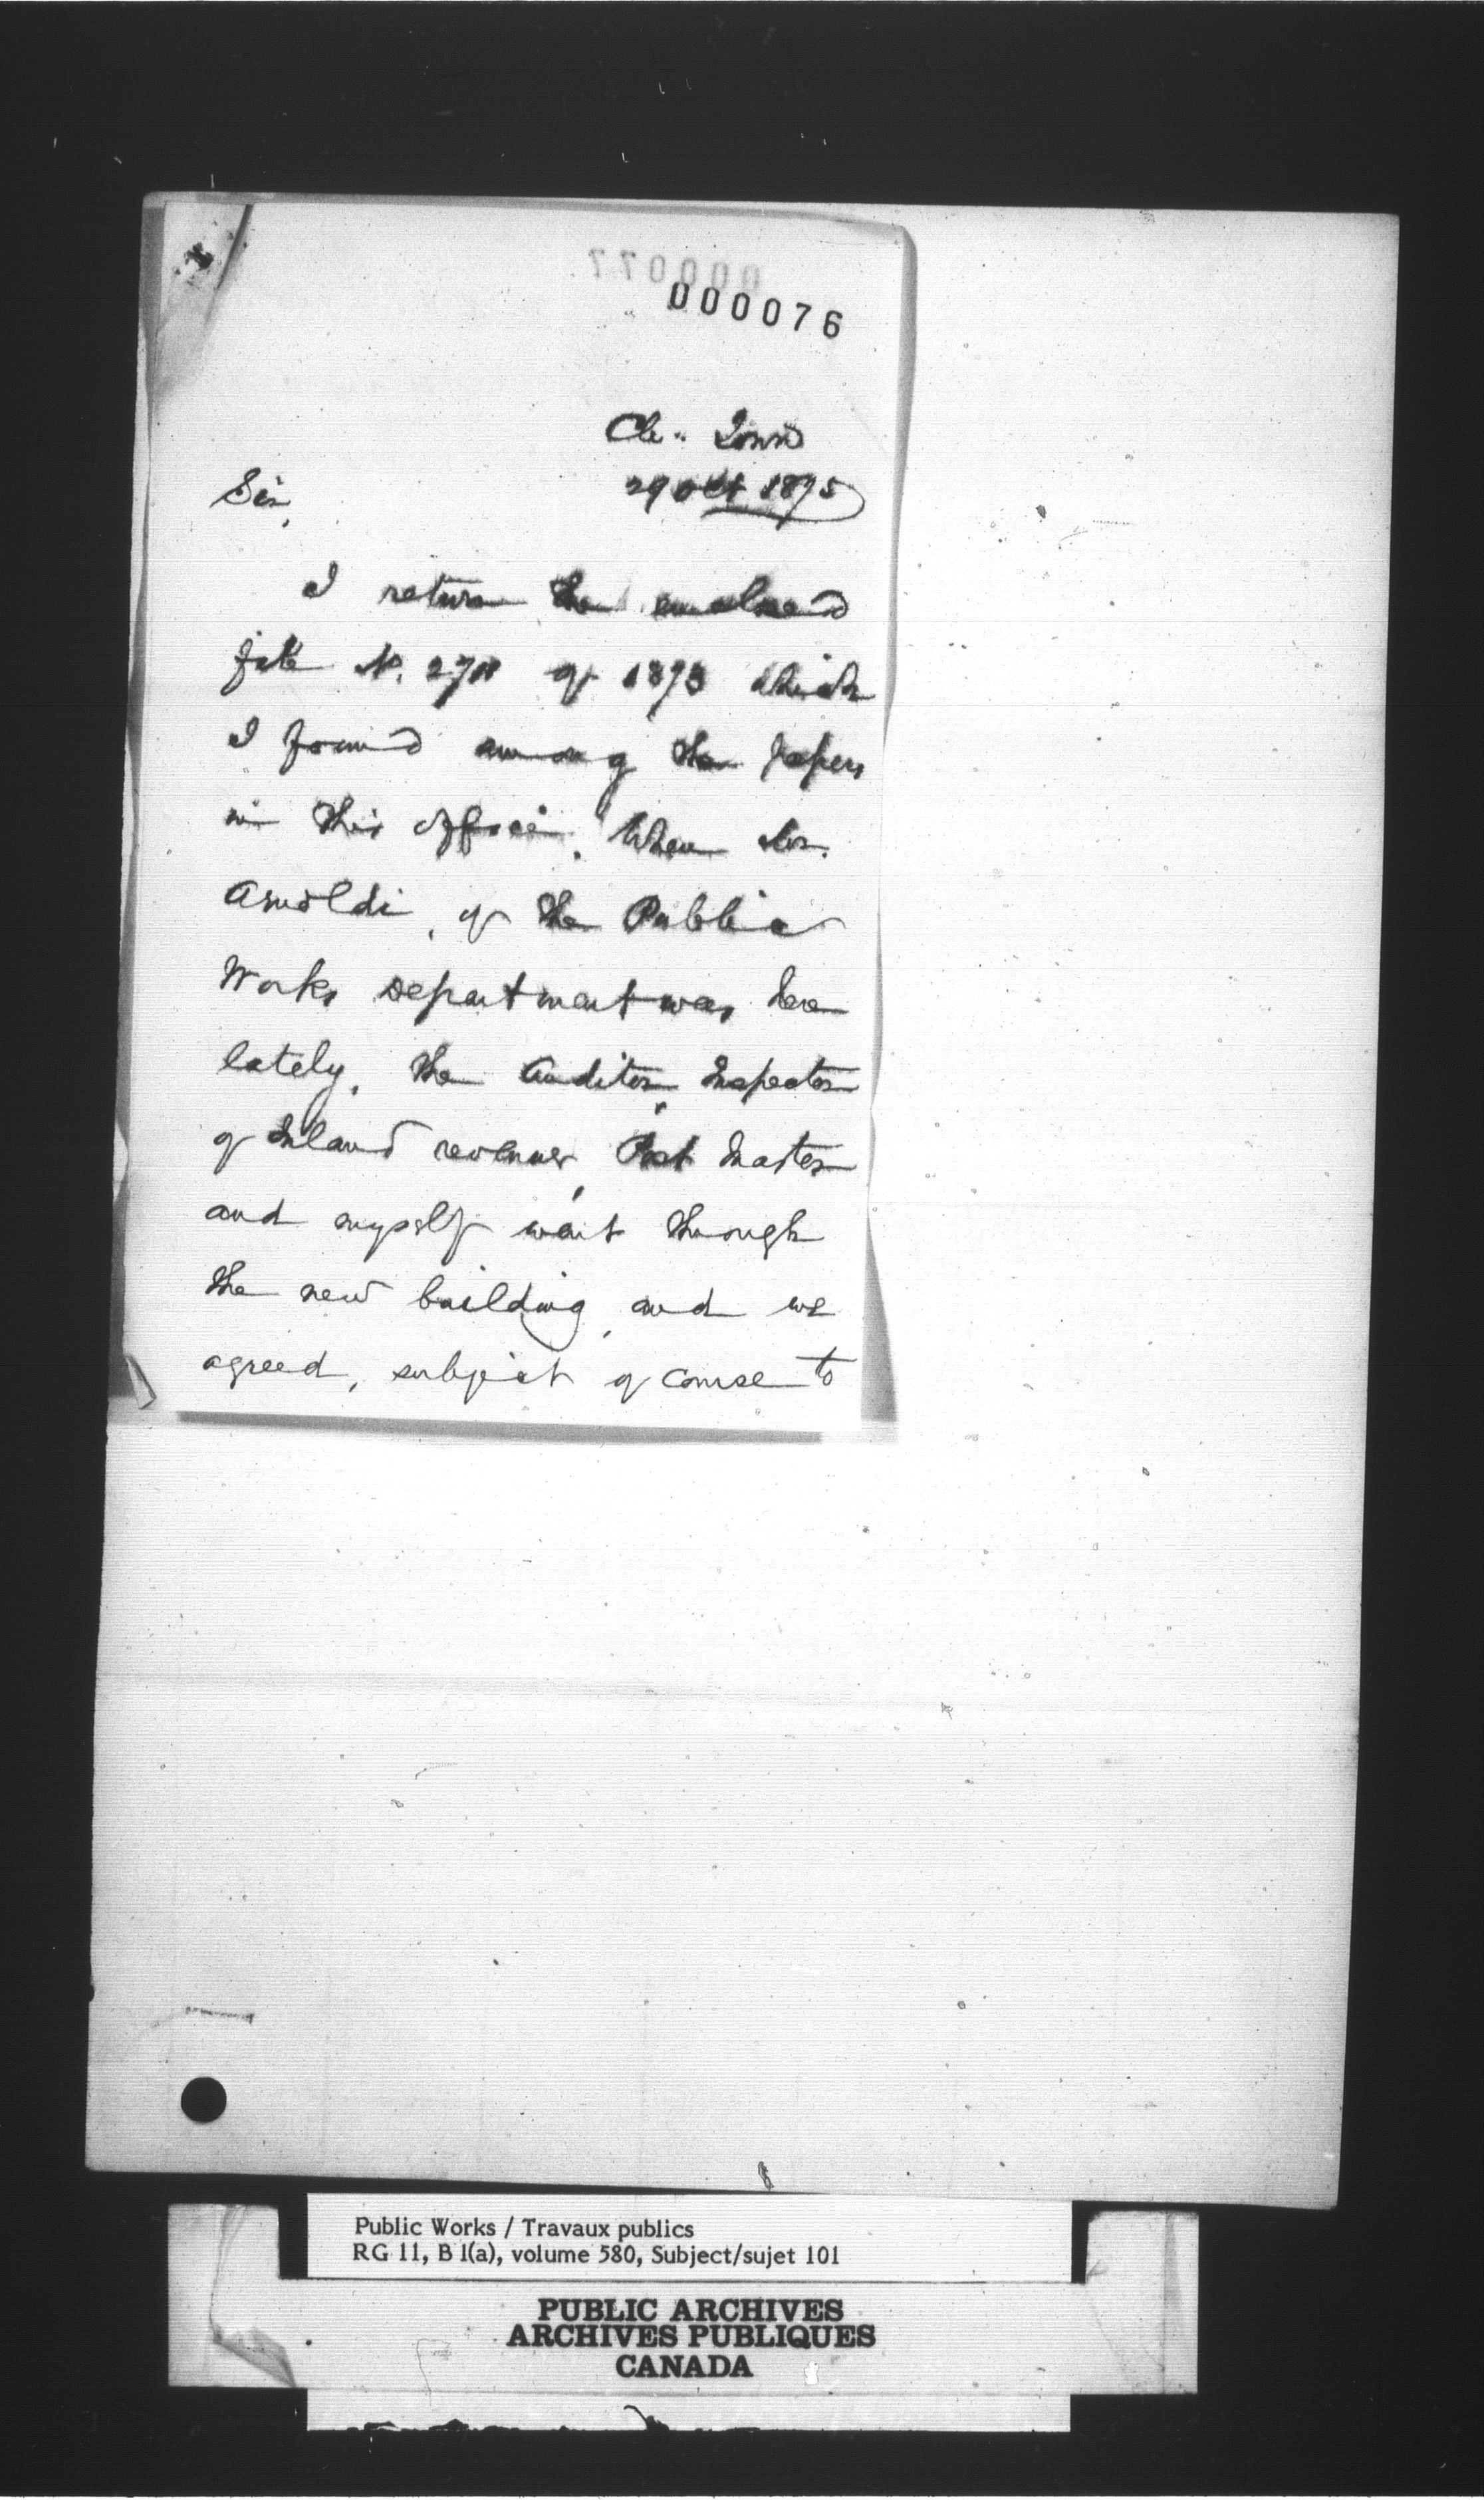 000077
000076
Ch. Town
29 Oct 1875
Sir,
I return the enclosed
file No. 2718 of 1873 which
I found among the papers
in this office. When Mr.
Arnoldi, of the Public
Works Department was here
lately, the Auditor, Inspector
of Inland revenue, Post Master
and myself went through
the new building, and we
agreed, subject of course to
Public Works / Travaux publics
RG 11, B 1(a), volume 580, Subject/sujet 101
PUBLIC ARCHIVES
ARCHIVES PUBLIQUES
CANADA